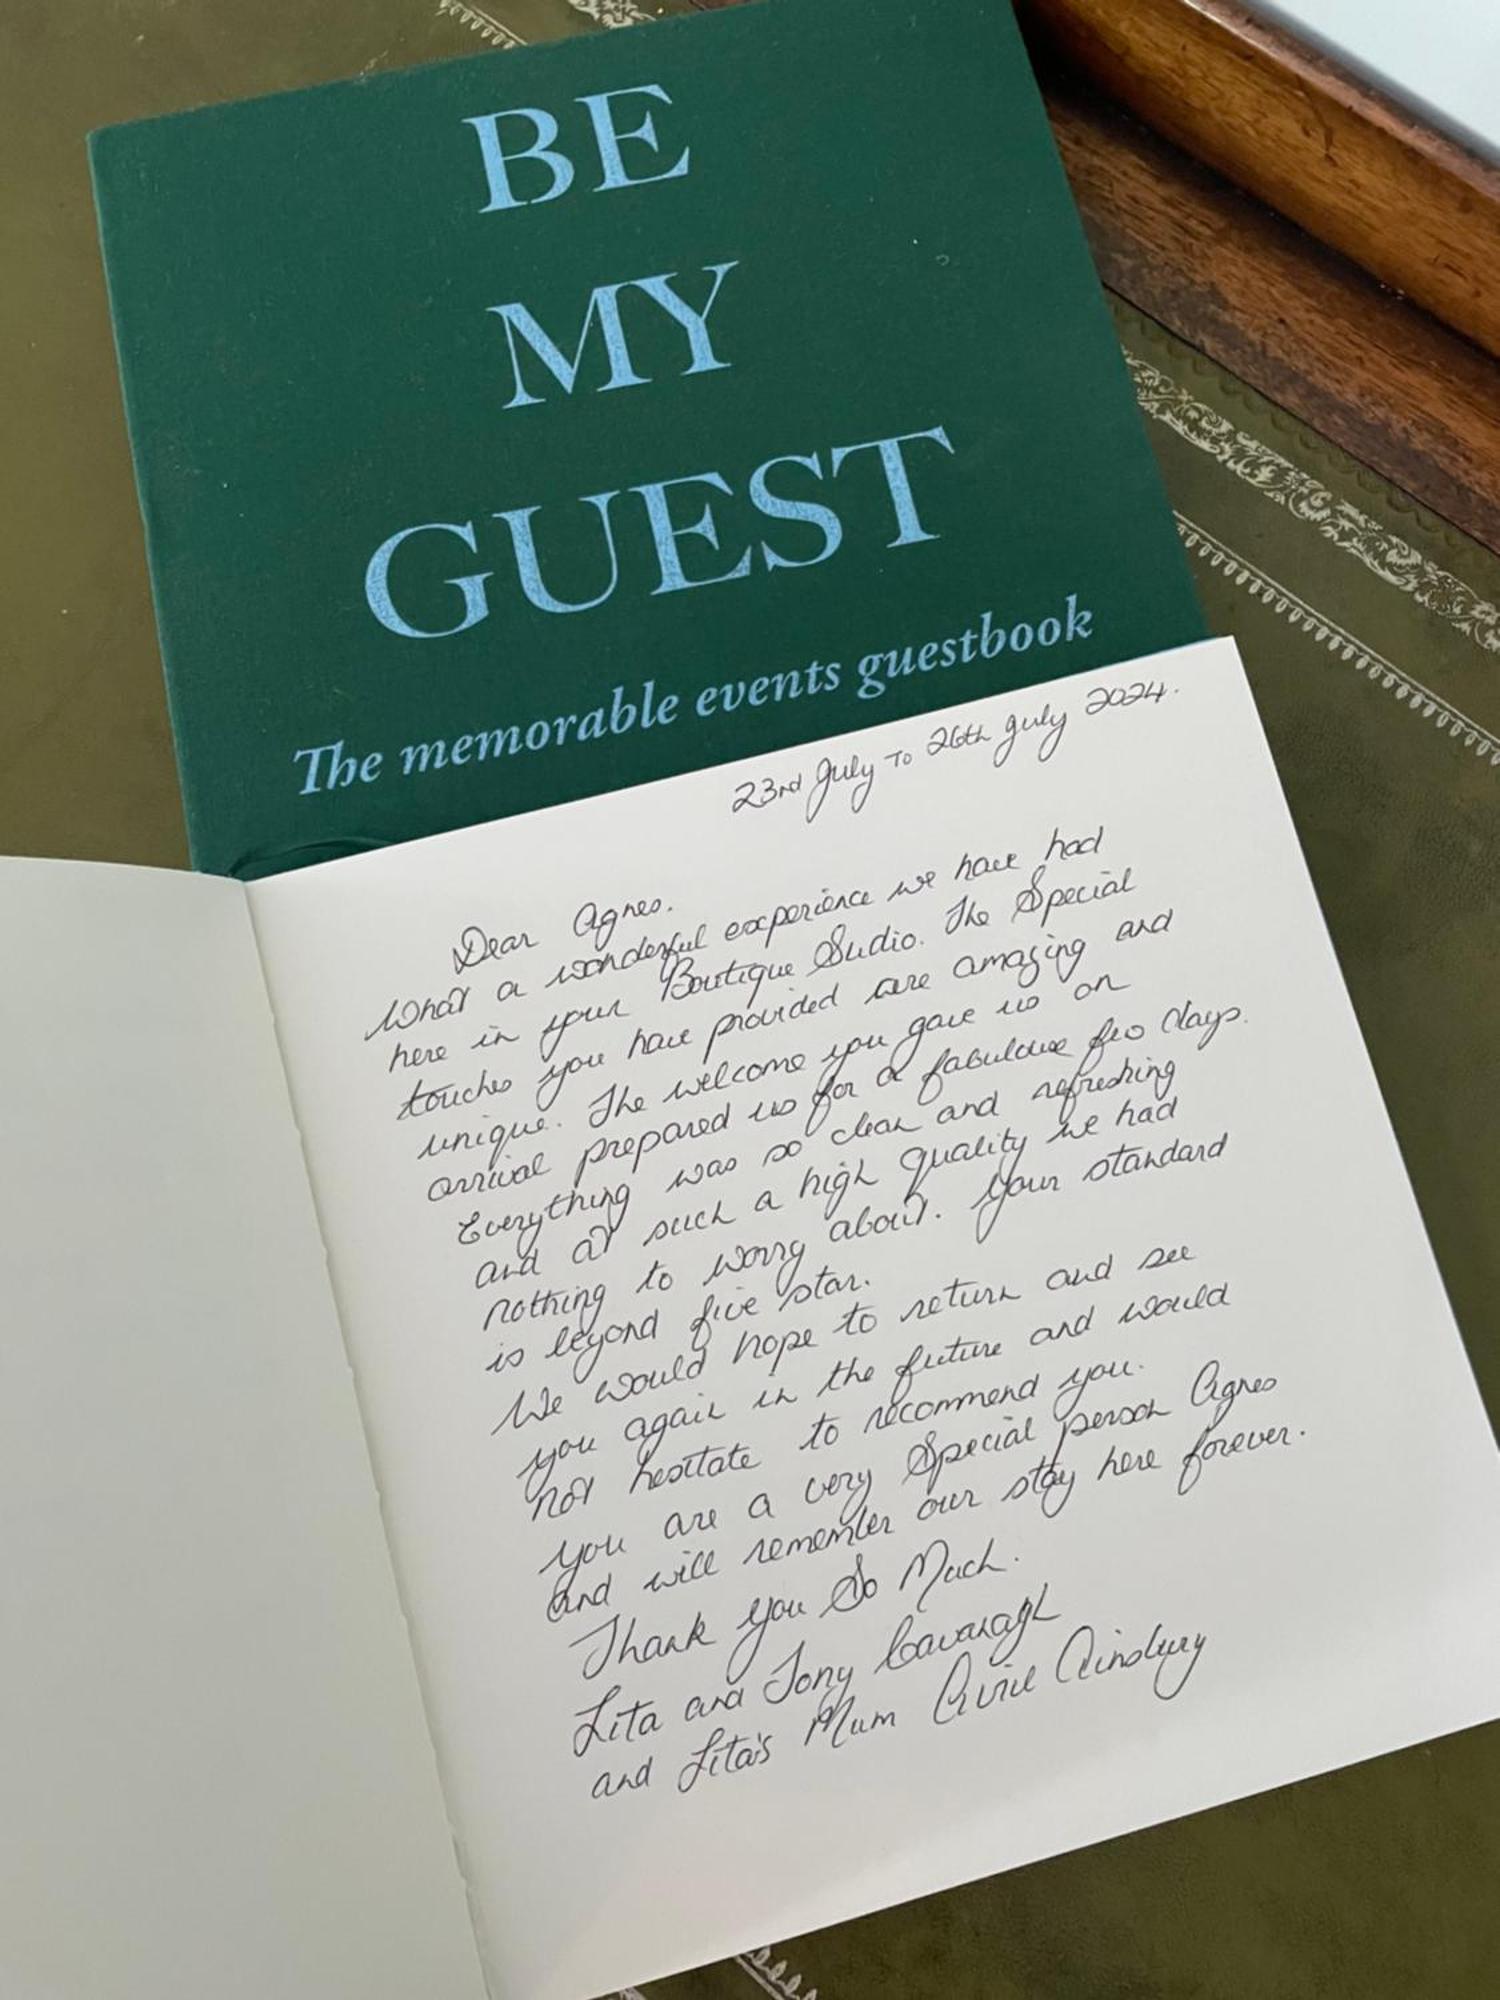 BE
MY
GUEST
The memorable events guestbook
23rd July To 26th July 2024.
Dear Agnes.
What a wonderful experience we have had
here in your Boutique Sudio. The Special
touches you have provided are amazing and
unique. The welcome you gave us on
arrival prepared us for a fabulous few days.
Everything was so clean and refreshing
and at such a high quality we had
nothing to worry about. Your standard
is beyond five star.
We would hope to return and see
you again in the future and would
not hesitate to recommend you.
You are a very Special person Agnes
and will remember our stay here forever.
Thank you So Much.
Lita and Tony Cavanagh
and Lita's Mum